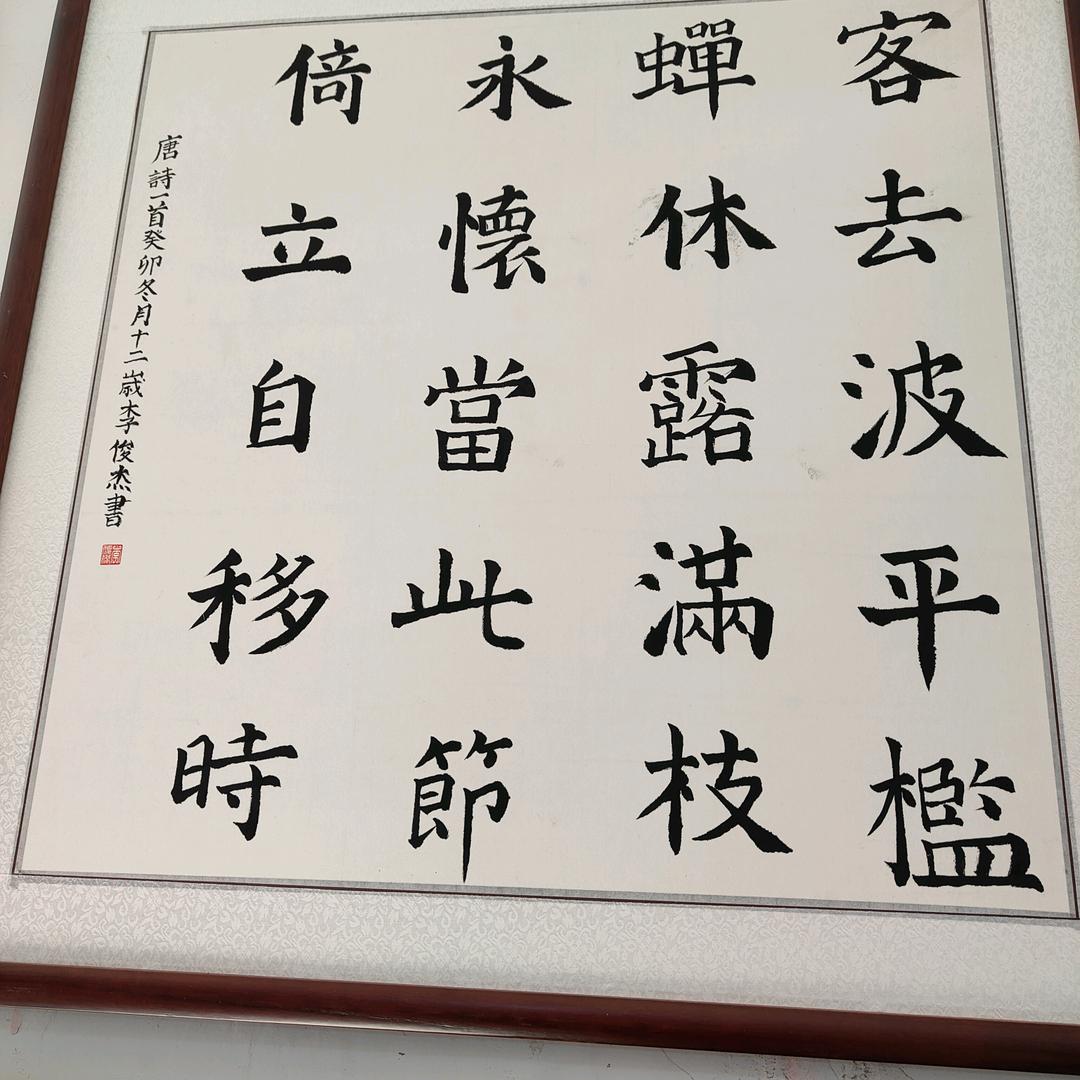 客去波平檻
蟬休露滿枝
永懷當此節
倚立自移時
唐詩一首癸卯冬月十二歲李俊杰書